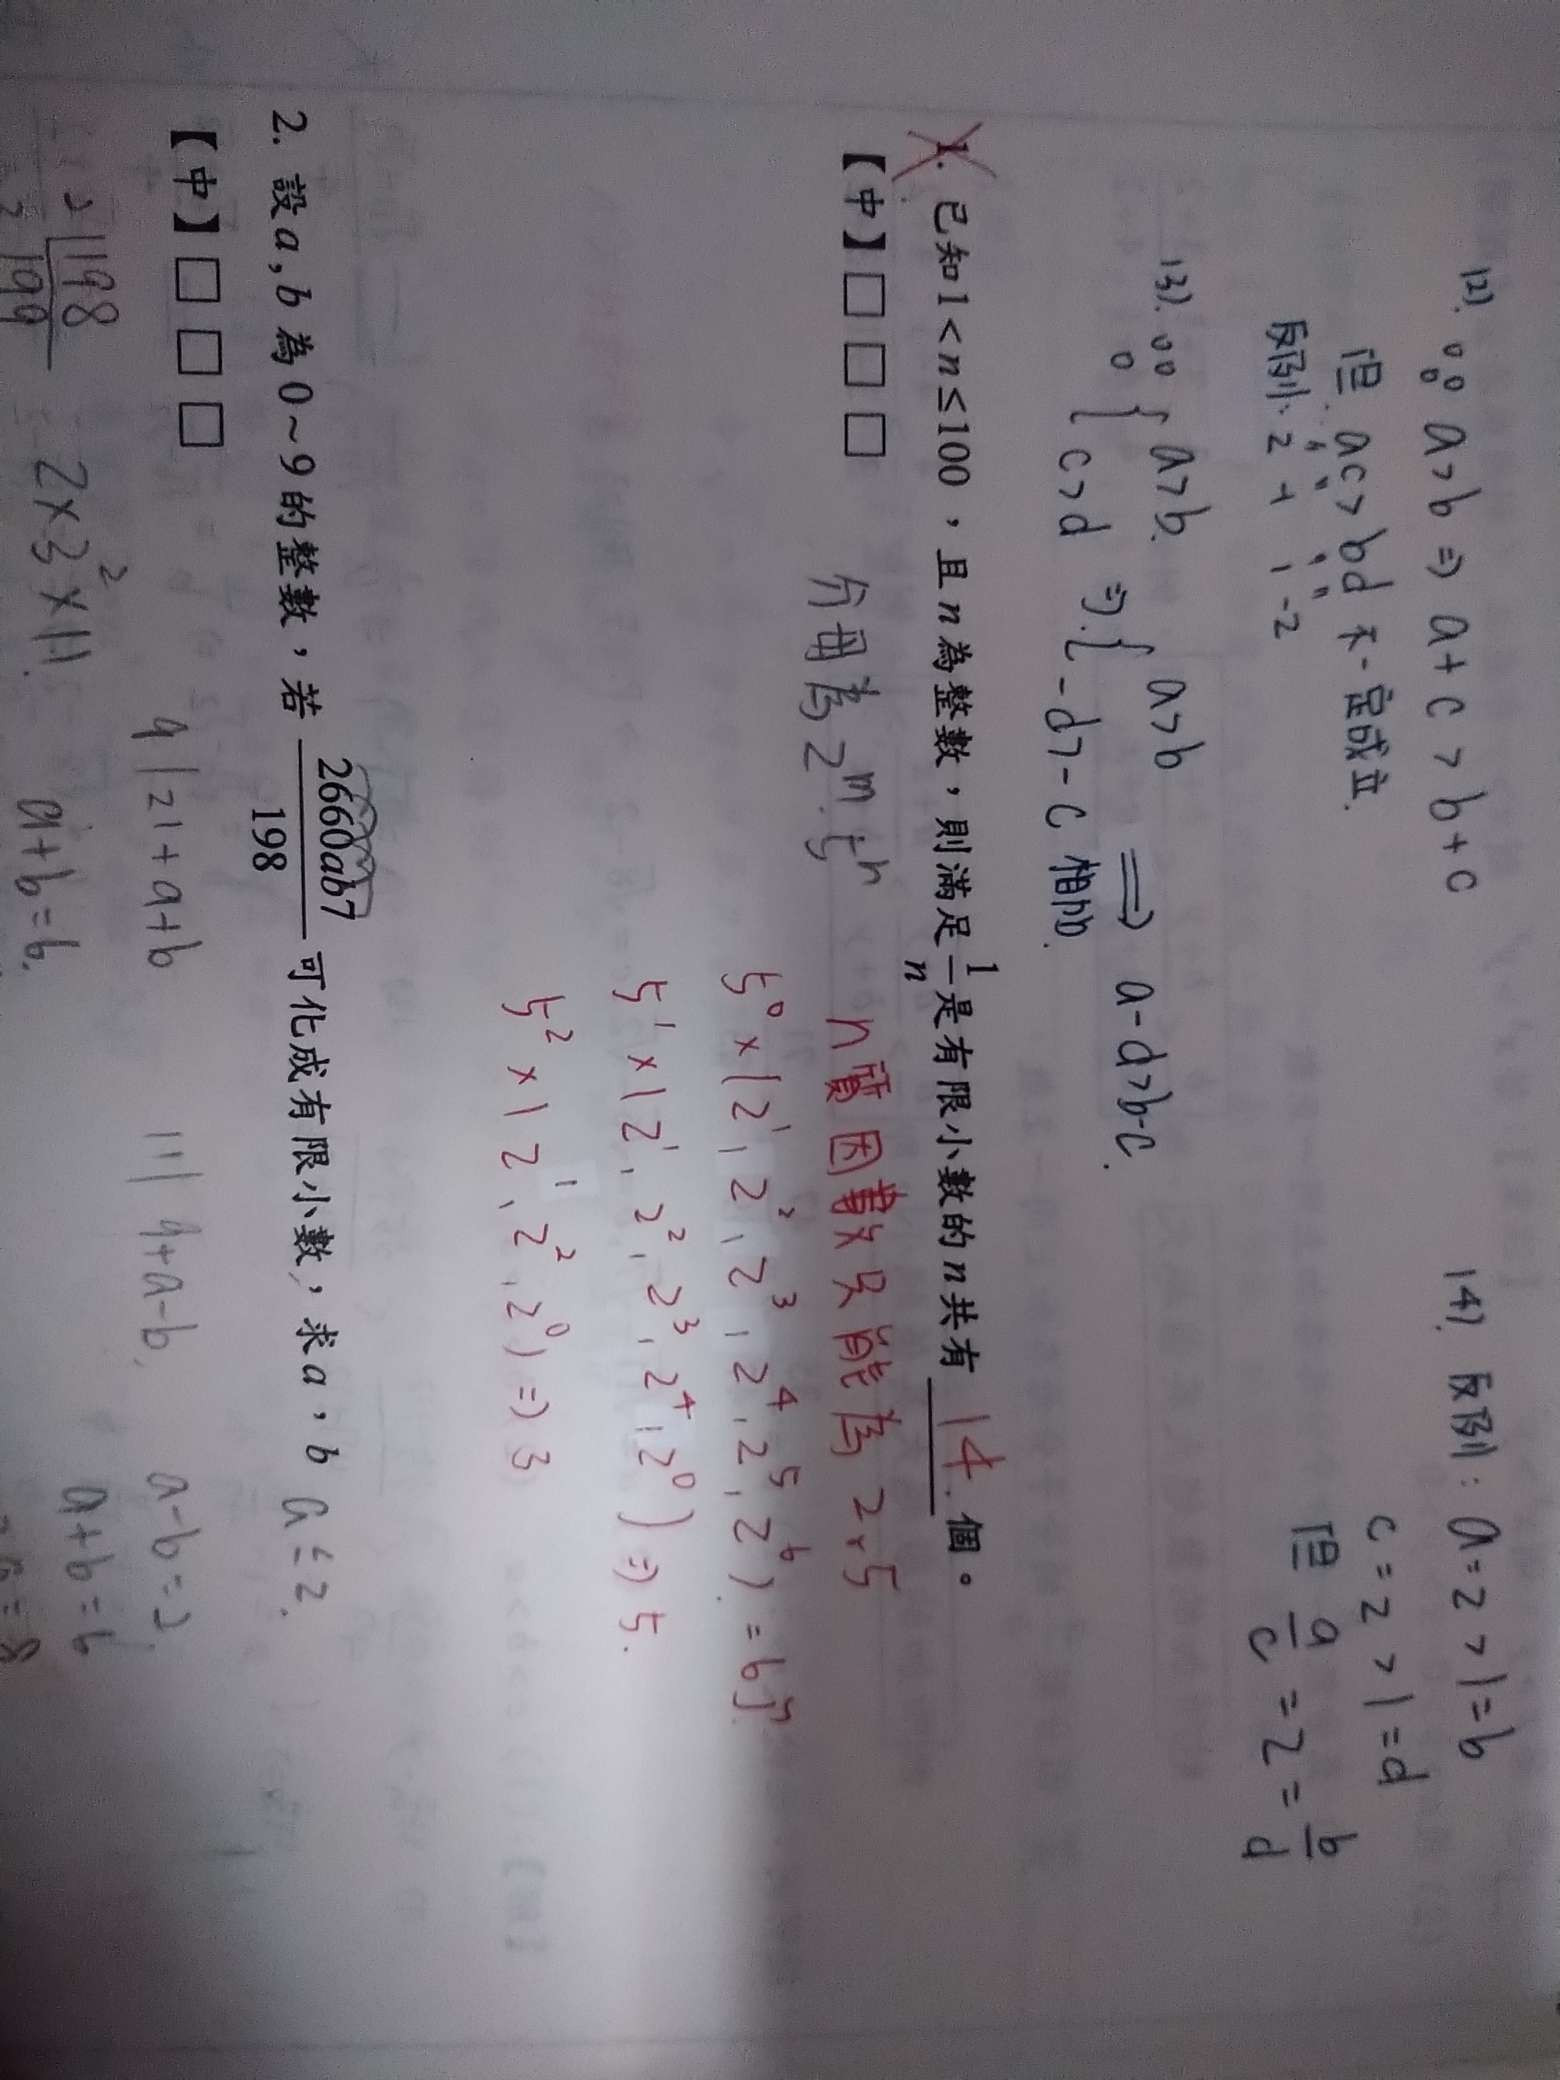 (2). ∵ a>b ⇒ a+c > b+c
但 ac > bd 不一定成立.
反例: 2 -1 1 -2
(3). ∵ { a>b. ⇒ { a>b ⟹ a-d>b-c.
c>d -d>-c 相加.
(4). 反例: a=2 > 1=b
c=2 > 1=d
但 a/c = 2 = b/d
1. 已知1<n≤100，且n為整數，則滿足 1/n 是有限小數的n共有 14 個。
【中】□□□
分母為2^m·5^n
n質因數只能為 2,5
5^0×(2^1, 2^2, 2^3, 2^4, 2^5, 2^6) = 6個
5^1×(2^1, 2^2, 2^3, 2^4, 2^0) ⇒ 5.
5^2×(2^1, 2^2, 2^0) ⇒ 3
2. 設a,b為0~9的整數，若 2660ab7/198 可化成有限小數，求a，b
【中】□□□
9|21+a+b 11|9+a-b. a-b=2.
198
99
2×3^2×11.
a+b=6.
a+b=6